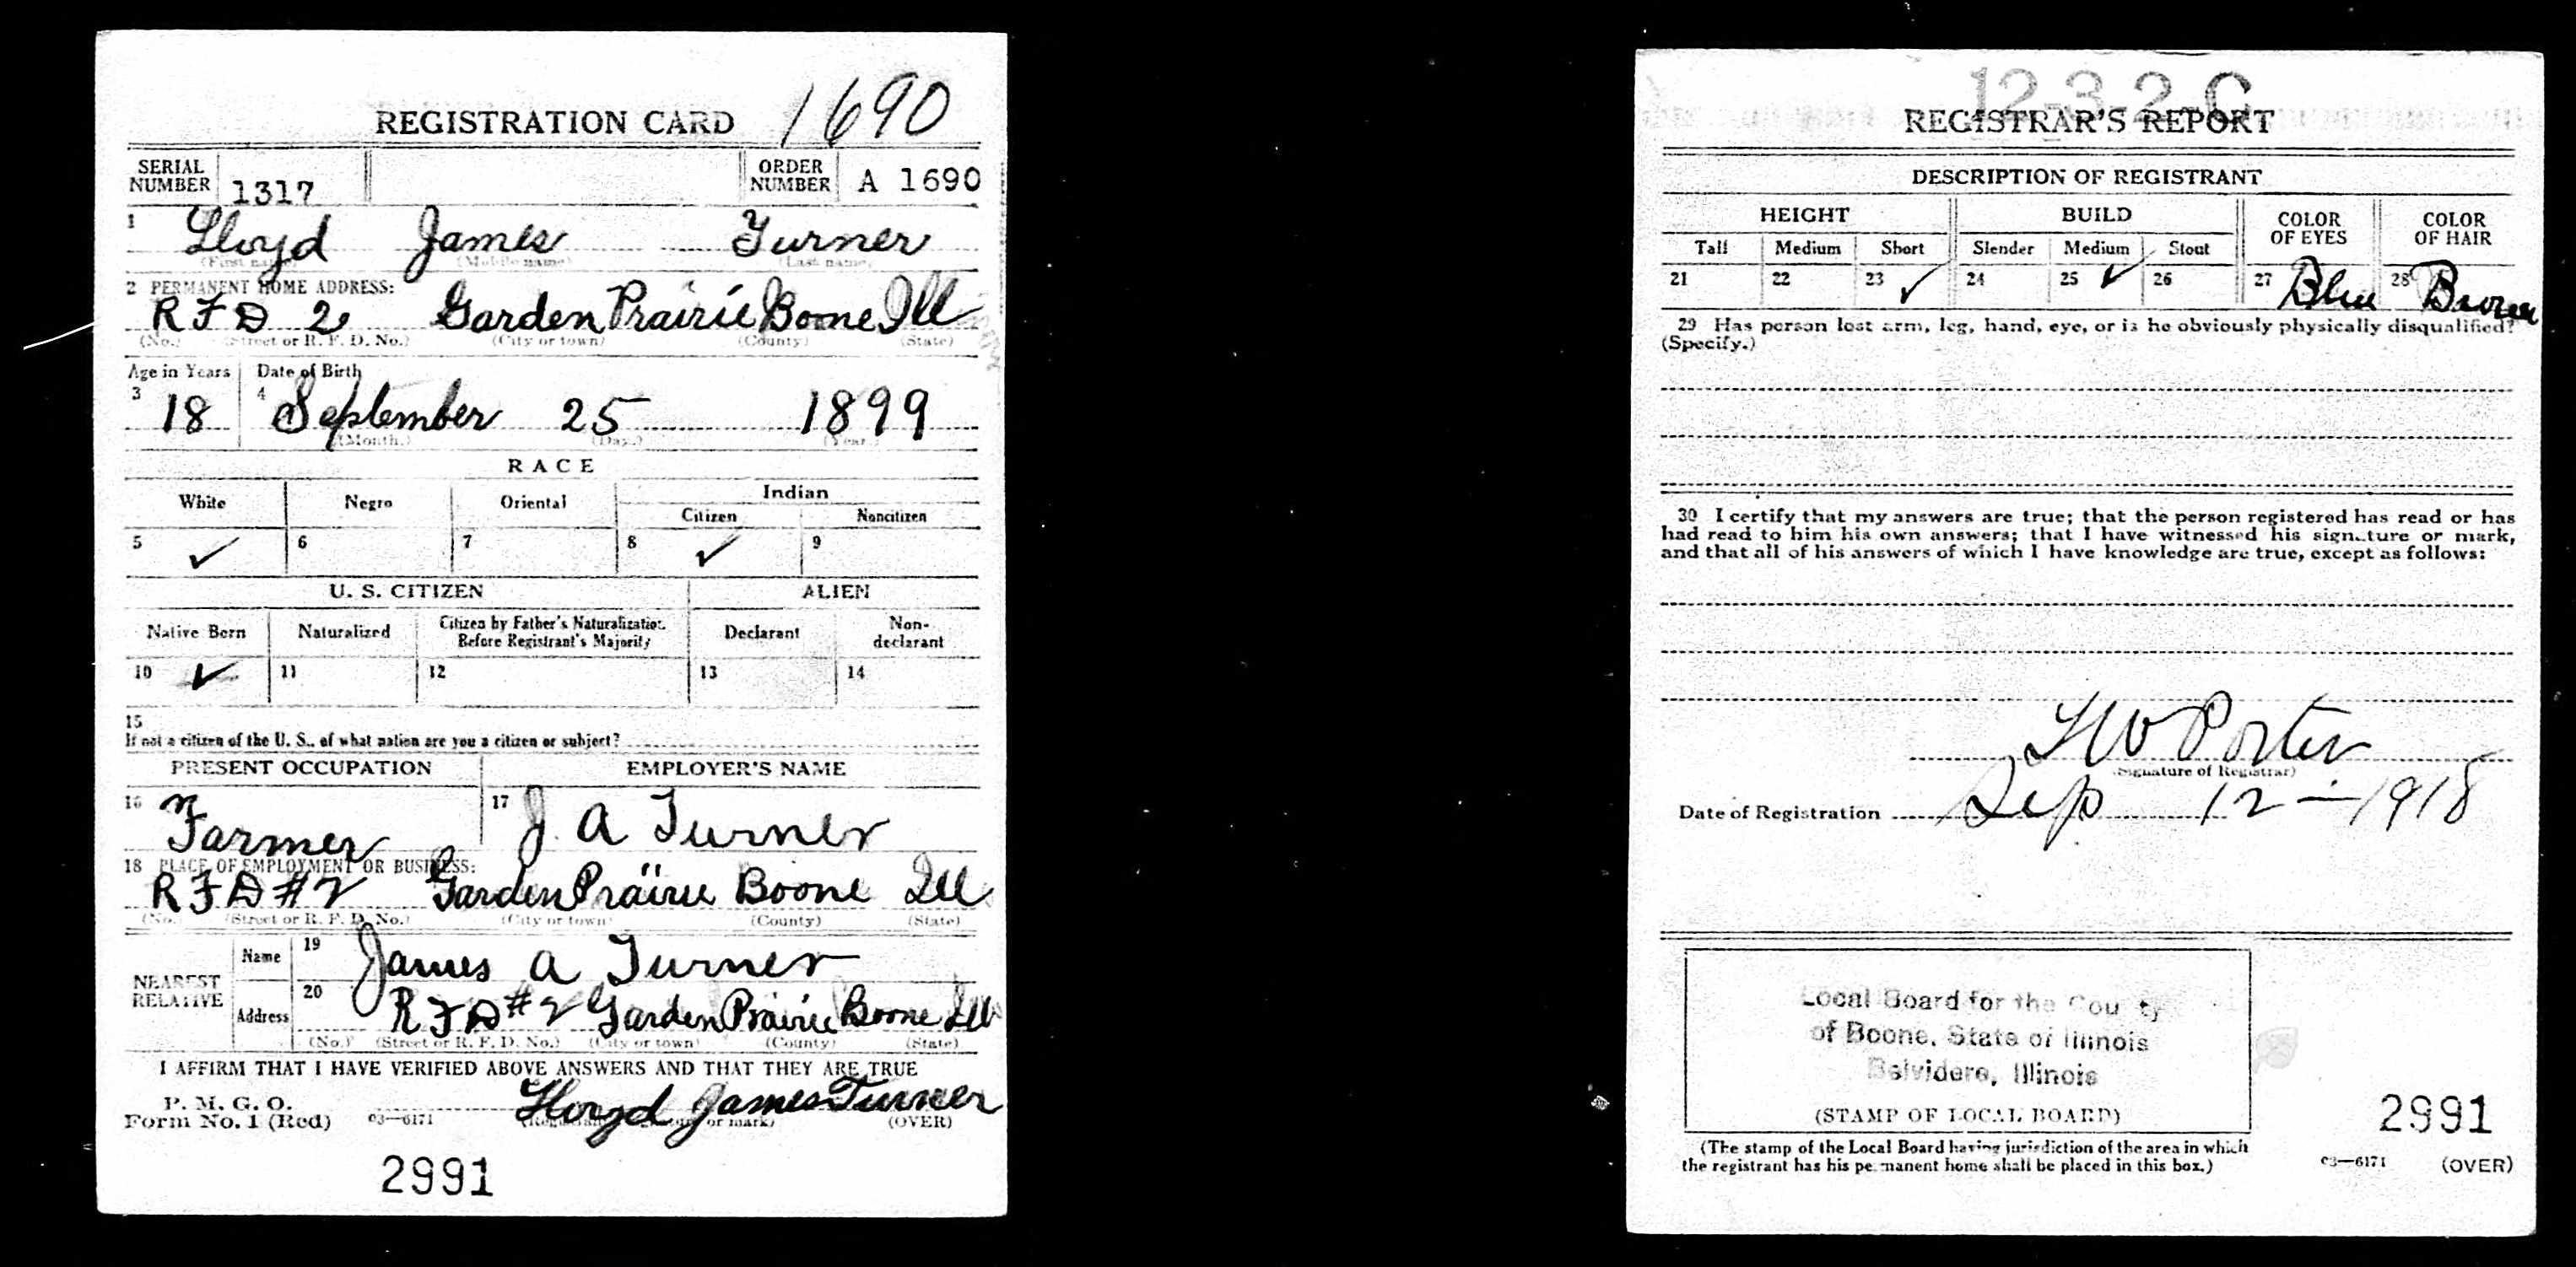 REGISTRATION CARD 1690
SERIAL NUMBER 1317 ORDER NUMBER A 1690
1 Lloyd James Turner
(First name) (Middle name) (Last name)
2 PERMANENT HOME ADDRESS:
R F D 2 Garden Prairie Boone Ill
(No.) (Street or R. F. D. No.) (City or town) (County) (State)
Age in Years Date of Birth
3 18 4 September 25 1899
(Month.) (Day.) (Year.)
RACE
White Negro Oriental Indian
Citizen Noncitizen
5 ✓ 6 7 8 ✓ 9
U. S. CITIZEN ALIEN
Native Born Naturalized Citizen by Father's Naturalization Before Registrant's Majority Declarant Non-declarant
10 ✓ 11 12 13 14
15
If not a citizen of the U. S., of what nation are you a citizen or subject?
PRESENT OCCUPATION EMPLOYER'S NAME
16 Farmer 17 J. A Turner
18 PLACE OF EMPLOYMENT OR BUSINESS:
R F D # 2 Garden Prairie Boone Ill
(No.) (Street or R. F. D. No.) (City or town) (County) (State)
NEAREST RELATIVE Name 19 James A Turner
Address 20 R F D # 2 Garden Prairie Boone Ill
(No.) (Street or R. F. D. No.) (City or town) (County) (State)
I AFFIRM THAT I HAVE VERIFIED ABOVE ANSWERS AND THAT THEY ARE TRUE
P. M. G. O.
Form No. 1 (Red) 03—6171 Lloyd James Turner
or mark) (OVER)
2991
12-3-2-C
REGISTRAR'S REPORT
DESCRIPTION OF REGISTRANT
HEIGHT BUILD COLOR OF EYES COLOR OF HAIR
Tall Medium Short Slender Medium Stout
21 22 23 ✓ 24 25 ✓ 26 27 Blue 28 Brown
29 Has person lost arm, leg, hand, eye, or is he obviously physically disqualified?
(Specify.)
30 I certify that my answers are true; that the person registered has read or has
had read to him his own answers; that I have witnessed his signature or mark,
and that all of his answers of which I have knowledge are true, except as follows:
Porter
(Signature of Registrar)
Date of Registration Sep 12 — 1918
Local Board for the County
of Boone, State of Illinois
Belvidere, Illinois
(STAMP OF LOCAL BOARD)
2991
(The stamp of the Local Board having jurisdiction of the area in which
the registrant has his permanent home shall be placed in this box.)
03—6171 (OVER)